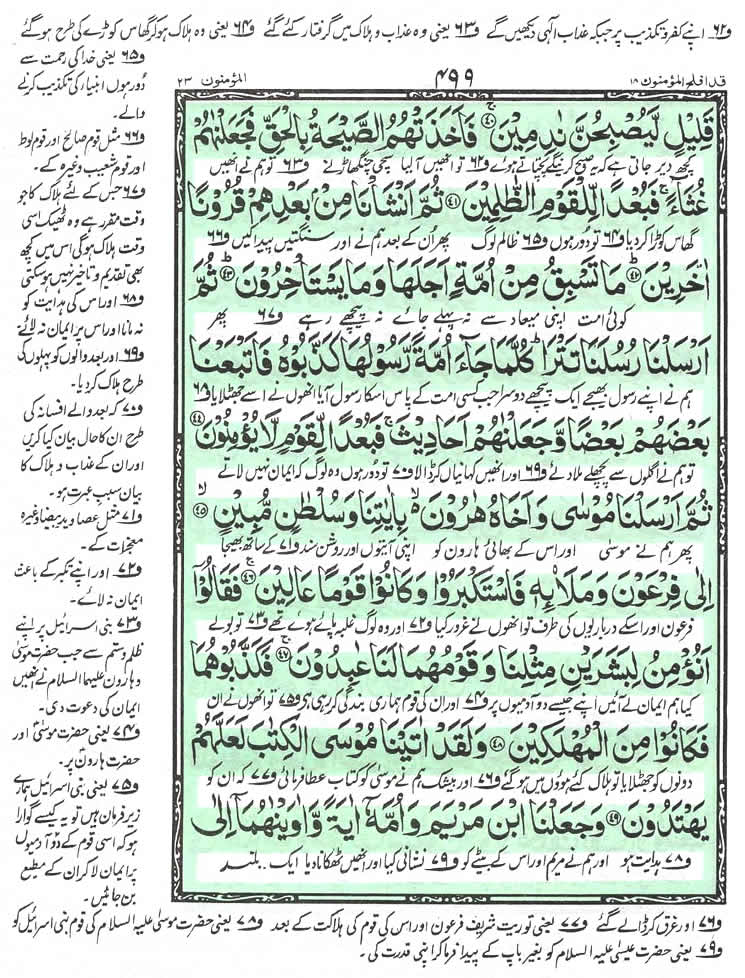 ف۶۲ اپنے کفر و تکذیب پر جبکہ عذاب الٰہی دیکھیں گے ف۶۳ یعنی وہ عذاب و ہلاک میں گرفتار کئے گئے ف۶۴ یعنی وہ ہلاک ہو کر گھاس کوڑے کی طرح ہو گئے
قد افلح المؤمنون ۱۸
۴۹۹
المؤمنون ۲۳
قَلِیْلٍ لَّیُصْبِحُنَّ نٰدِمِیْنَ ﴿۴۰﴾ فَاَخَذَتْهُمُ الصَّیْحَةُ بِالْحَقِّ فَجَعَلْنٰهُمْ
کچھ دیر جاتی ہے کہ یہ صبح کریں گے پچتاتے ہوئے ف۶۲ تو انھیں آلیا سچی چنگھاڑ نے ف۶۳ تو ہم نے انھیں
غُثَآءً ۚ فَبُعْدًا لِّلْقَوْمِ الظّٰلِمِیْنَ ﴿۴۱﴾ ثُمَّ اَنْشَاْنَا مِنْۢ بَعْدِهِمْ قُرُوْنًا
گھاس کوڑا کر دیا ف۶۴ تو دور ہوں ف۶۵ ظالم لوگ پھر اُن کے بعد ہم نے اور سنگتیں پیدا کیں ف۶۶
اٰخَرِیْنَ ﴿۴۲﴾ مَا تَسْبِقُ مِنْ اُمَّةٍ اَجَلَهَا وَمَا یَسْتَاْخِرُوْنَ ﴿۴۳﴾ ثُمَّ
کوئی امت اپنی میعاد سے نہ پہلے جائے نہ پیچھے رہے ف۶۷ پھر
اَرْسَلْنَا رُسُلَنَا تَتْرَا ؕ كُلَّمَا جَآءَ اُمَّةً رَّسُوْلُهَا كَذَّبُوْهُ فَاَتْبَعْنَا
ہم نے اپنے رسول بھیجے ایک پیچھے دوسرا جب کسی امت کے پاس اسکا رسول آیا انھوں نے اسے جھٹلایا ف۶۸
بَعْضَهُمْ بَعْضًا وَّجَعَلْنٰهُمْ اَحَادِیْثَ ۚ فَبُعْدًا لِّقَوْمٍ لَّا یُؤْمِنُوْنَ ﴿۴۴﴾
تو ہم نے اگلوں سے پچھلے ملا دئے ف۶۹ اور انھیں کہانیاں کر ڈالا ف۷۰ تو دور ہوں وہ لوگ کہ ایمان نہیں لاتے
ثُمَّ اَرْسَلْنَا مُوْسٰی وَاَخَاهُ هٰرُوْنَ ۙ بِاٰیٰتِنَا وَسُلْطٰنٍ مُّبِیْنٍ ﴿۴۵﴾ ۙ
پھر ہم نے موسٰی اور اس کے بھائی ہارون کو اپنی آیتوں اور روشن سند ف۷۱ کے ساتھ بھیجا
اِلٰی فِرْعَوْنَ وَمَلَا۟ئِهٖ فَاسْتَكْبَرُوْا وَكَانُوْا قَوْمًا عَالِیْنَ ﴿۴۶﴾ ۚ فَقَالُوْۤا
فرعون اور اسکے درباریوں کی طرف تو انھوں نے غرور کیا ف۷۲ اور وہ لوگ غلبہ پائے ہوئے تھے ف۷۳ تو بولے
اَنُؤْمِنُ لِبَشَرَیْنِ مِثْلِنَا وَقَوْمُهُمَا لَنَا عٰبِدُوْنَ ﴿۴۷﴾ ۚ فَكَذَّبُوْهُمَا
کیا ہم ایمان لے آئیں اپنے جیسے دو آدمیوں پر ف۷۴ اور ان کی قوم ہماری بندگی کر رہی ہے ف۷۵ تو انھوں نے ان
فَكَانُوْا مِنَ الْمُهْلَكِیْنَ ﴿۴۸﴾ وَلَقَدْ اٰتَیْنَا مُوْسَی الْكِتٰبَ لَعَلَّهُمْ
دونوں کو جھٹلایا تو ہلاک کئے ہوؤں میں ہو گئے ف۷۶ اور بیشک ہم نے موسٰی کو کتاب عطا فرمائی ف۷۷ کہ ان کو
یَهْتَدُوْنَ ﴿۴۹﴾ وَجَعَلْنَا ابْنَ مَرْیَمَ وَاُمَّهٗۤ اٰیَةً وَّاٰوَیْنٰهُمَاۤ اِلٰی
ف۷۸ ہدایت ہو اور ہم نے مریم اور اس کے بیٹے کو ف۷۹ نشانی کیا اور انھیں ٹھکانا دیا ایک .. بلند
ف۶۵ یعنی خدا کی رحمت سے
دُور ہوں انبیاء کی تکذیب کرنے
والے۔
ف۶۶ مثل قوم صالح اور قوم لوط
اور قوم شعیب وغیرہ کے۔
ف۶۷ جس کے لئے ہلاک کا جو
وقت مقرر ہے وہ ٹھیک اسی
وقت ہلاک ہو گی اس میں کچھ
بھی تقدیم و تاخیر نہیں ہو سکتی
ف۶۸ اور اس کی ہدایت کو
نہ مانا اور اس پر ایمان نہ لائے
ف۶۹ اور بعد والوں کو پہلوں کی
طرح ہلاک کر دیا۔
ف۷۰ کہ بعد والے افسانہ کی
طرح ان کا حال بیان کیا کریں
اور ان کے عذاب و ہلاک کا
بیان سبب عبرت ہو۔
ف۷۱ مثل عصا و ید بیضا وغیرہ
معجزات کے۔
ف۷۲ اور اپنے تکبر کے باعث
ایمان نہ لائے۔
ف۷۳ بنی اسرائیل پر اپنے
ظلم و ستم سے جب حضرت موسٰی
و ہارون علیہما السلام نے انھیں
ایمان کی دعوت دی۔
ف۷۴ یعنی حضرت موسٰی اور
حضرت ہارون پر۔
ف۷۵ یعنی بنی اسرائیل ہمارے
زیر فرمان ہیں تو یہ کیسے گوارا
ہو کہ اسی قوم کے دو آدمیوں
پر ایمان لا کر ان کے مطیع
بن جائیں۔
ف۷۶ اور غرق کر ڈالے گئے ف۷۷ یعنی توریت شریف فرعون اور اس کی قوم کی ہلاکت کے بعد ف۷۸ یعنی حضرت موسٰی علیہ السلام کی قوم بنی اسرائیل کو
ف۷۹ یعنی حضرت عیسٰی علیہ السلام کو بغیر باپ کے پیدا فرما کر اپنی قدرت کی ۔